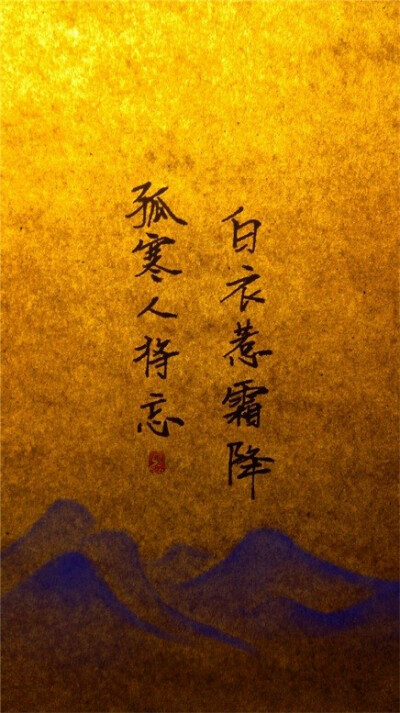 白衣惹霜降
孤寒人将忘